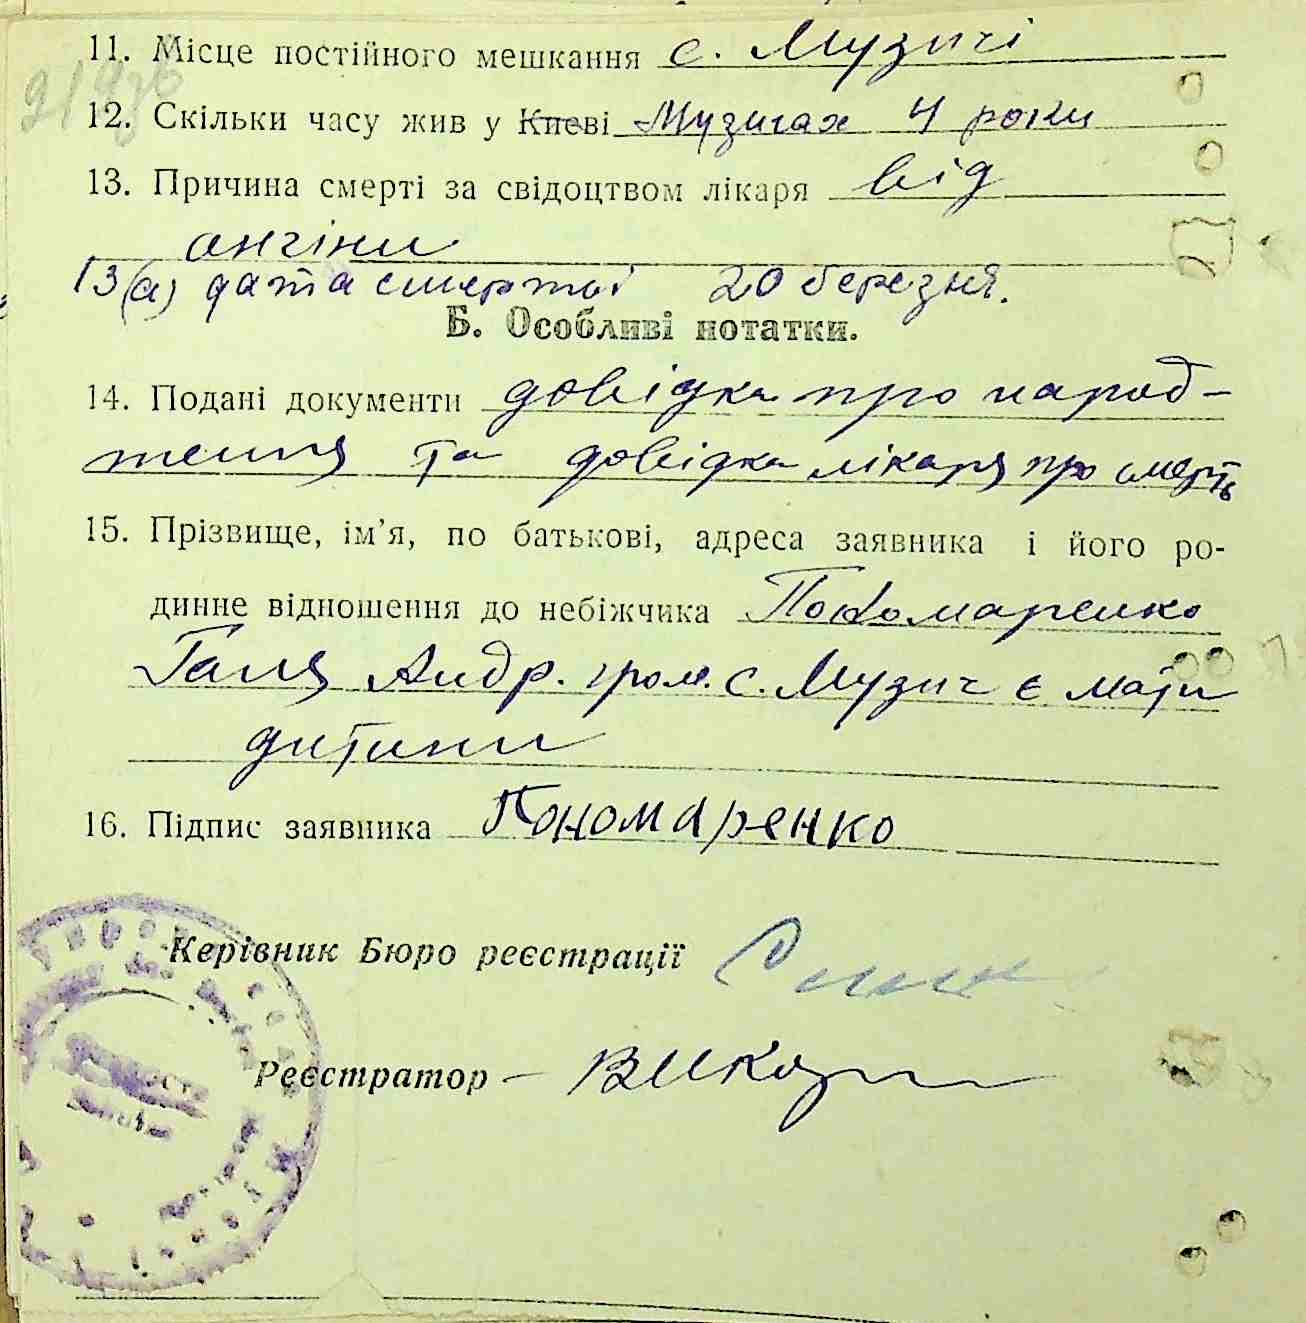 11. Місце постійного мешкання с. Музичі
12. Скільки часу жив у Києві Музичах 4 роки
13. Причина смерті за свідоцтвом лікаря від
ангіни
13(а) дата смерті 20 березня.
Б. Особливі нотатки.
14. Подані документи довідка про народ-
ження та довідка лікаря про смерть
15. Прізвище, ім’я, по батькові, адреса заявника і його ро-
динне відношення до небіжчика Пономаренко
Галя Андр. гром. с. Музич є мати
дитини
16. Підпис заявника Пономаренко
Керівник Бюро реєстрації
Реєстратор –